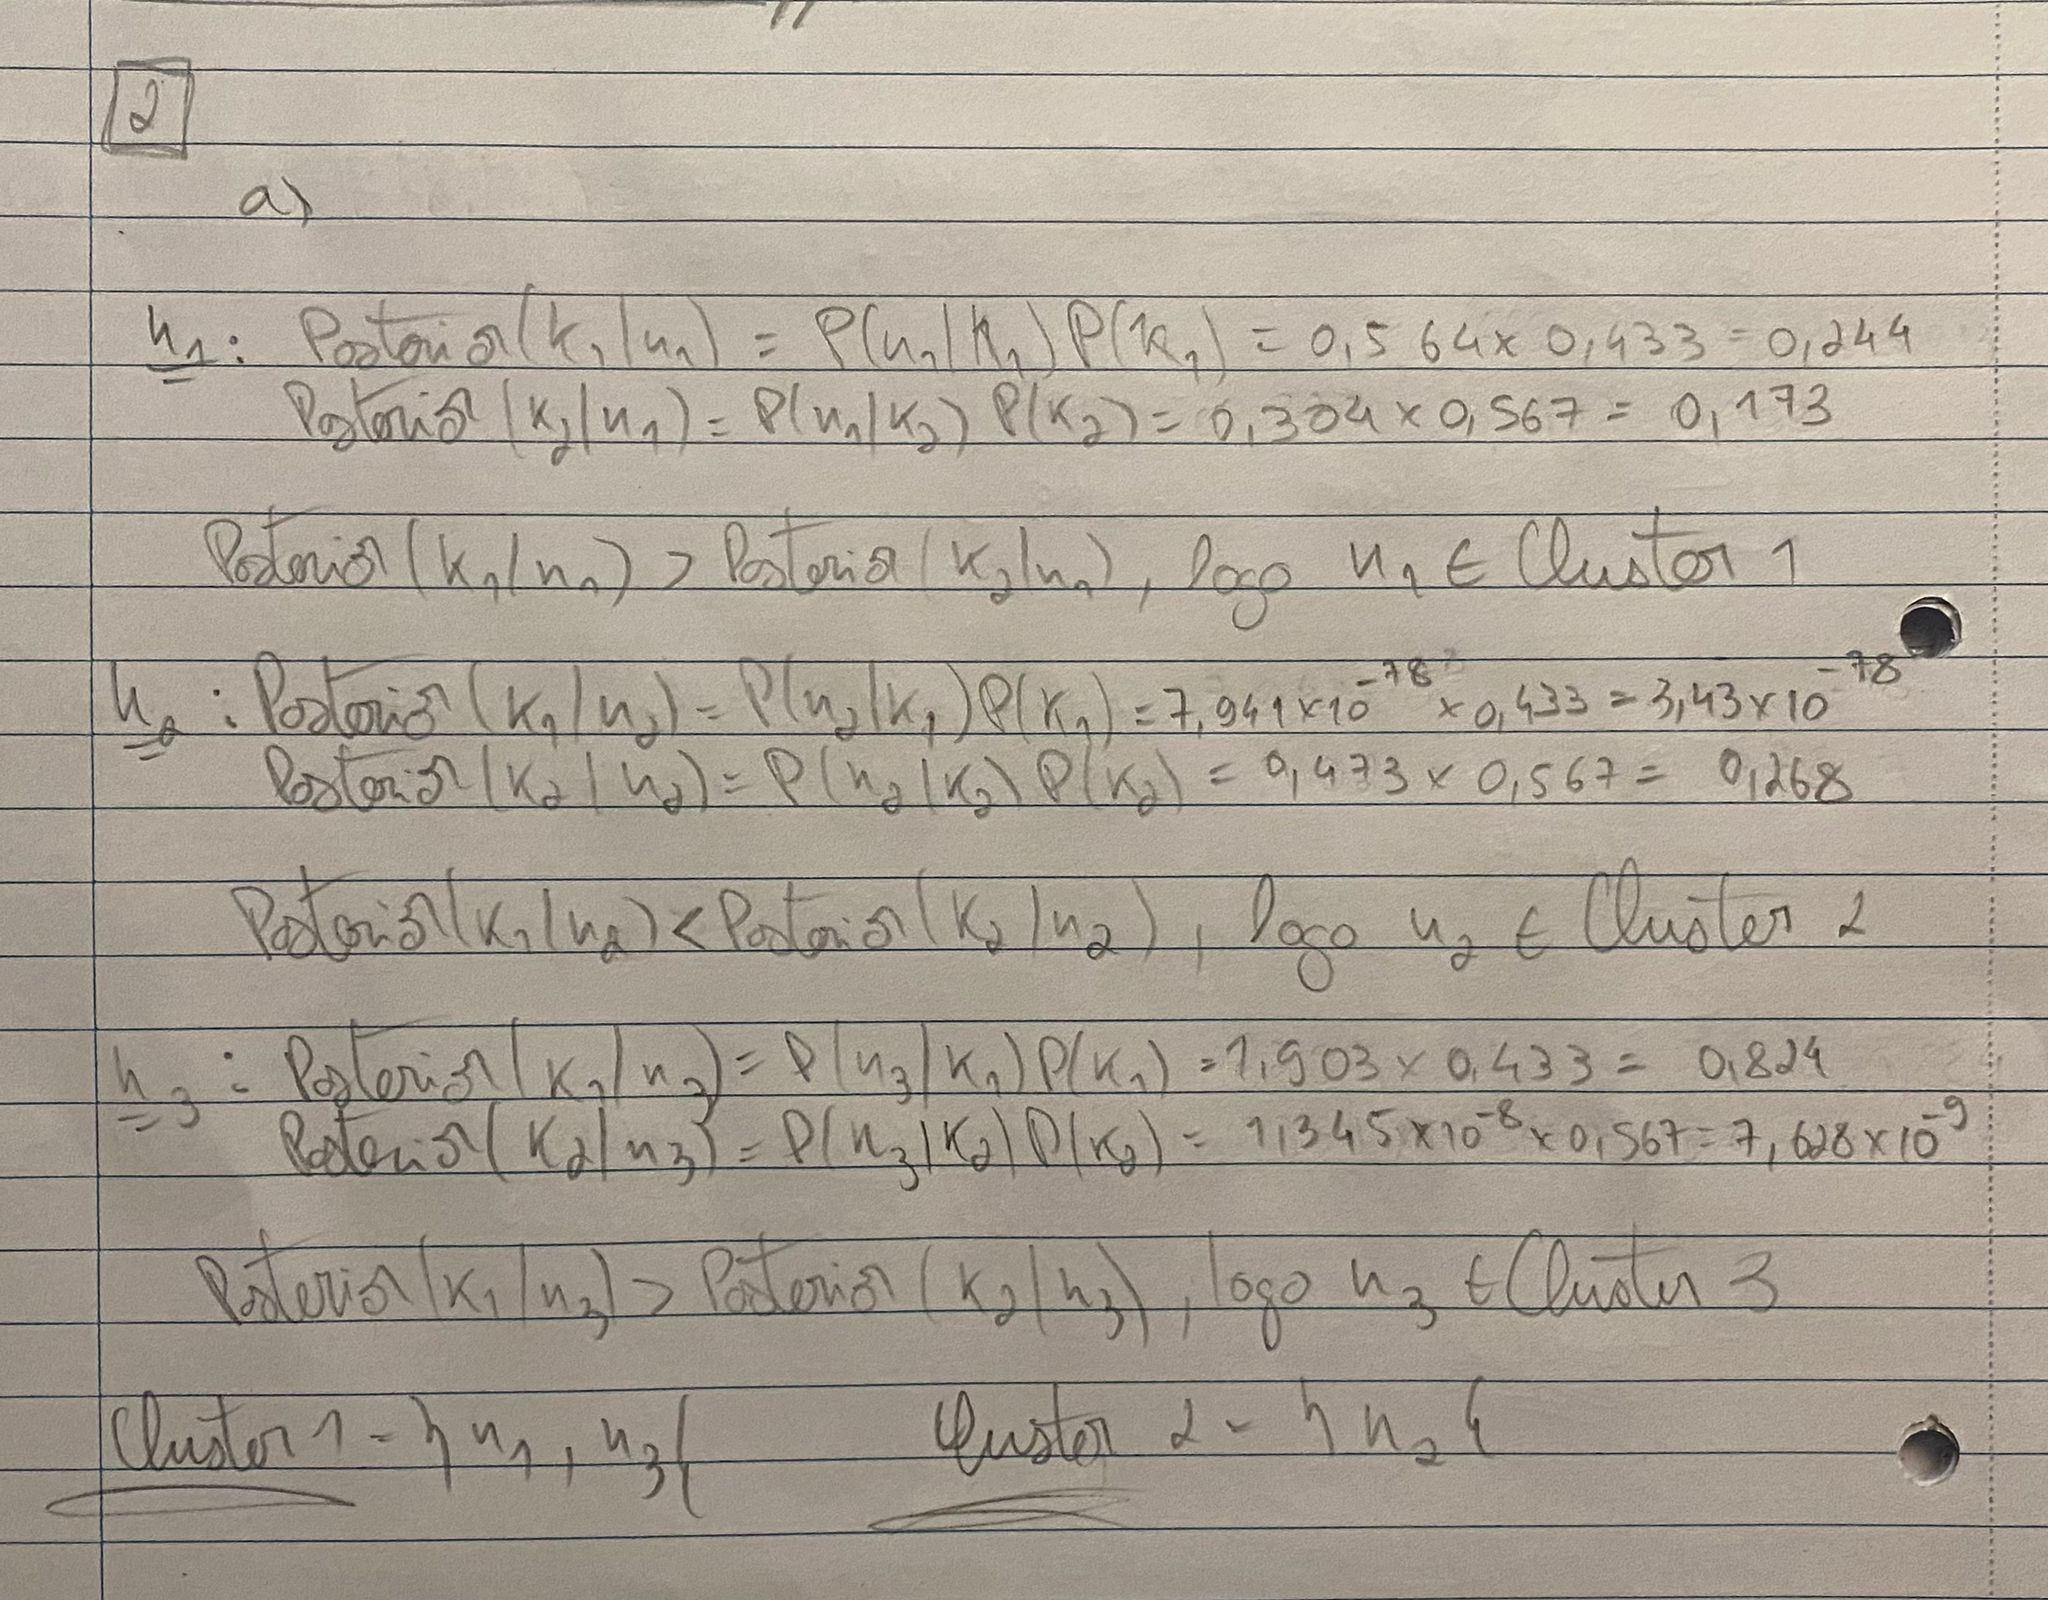 2
a)
x₁: Posterior(k₁|x₁) = P(x₁|k₁)P(k₁) = 0,564 × 0,433 = 0,244
Posterior(k₂|x₁) = P(x₁|k₂) P(k₂) = 0,304 × 0,567 = 0,173
Posterior(k₁|x₁) > Posterior(k₂|x₁), logo x₁ ∈ Cluster 1
x₂: Posterior(k₁|x₂) = P(x₂|k₁)P(k₁) = 7,941×10⁻⁷⁸ × 0,433 = 3,43×10⁻⁷⁸
Posterior(k₂|x₂) = P(x₂|k₂) P(k₂) = 0,473 × 0,567 = 0,268
Posterior(k₁|x₂) < Posterior(k₂|x₂), logo x₂ ∈ Cluster 2
x₃: Posterior(k₁|x₃) = P(x₃|k₁)P(k₁) = 1,903 × 0,433 = 0,824
Posterior(k₂|x₃) = P(x₃|k₂)P(k₂) = 1,345×10⁻⁸ × 0,567 = 7,628×10⁻⁹
Posterior(k₁|x₃) > Posterior(k₂|x₃), logo x₃ ∈ Cluster 3
Cluster 1 = {x₁, x₃} Cluster 2 = {x₂}